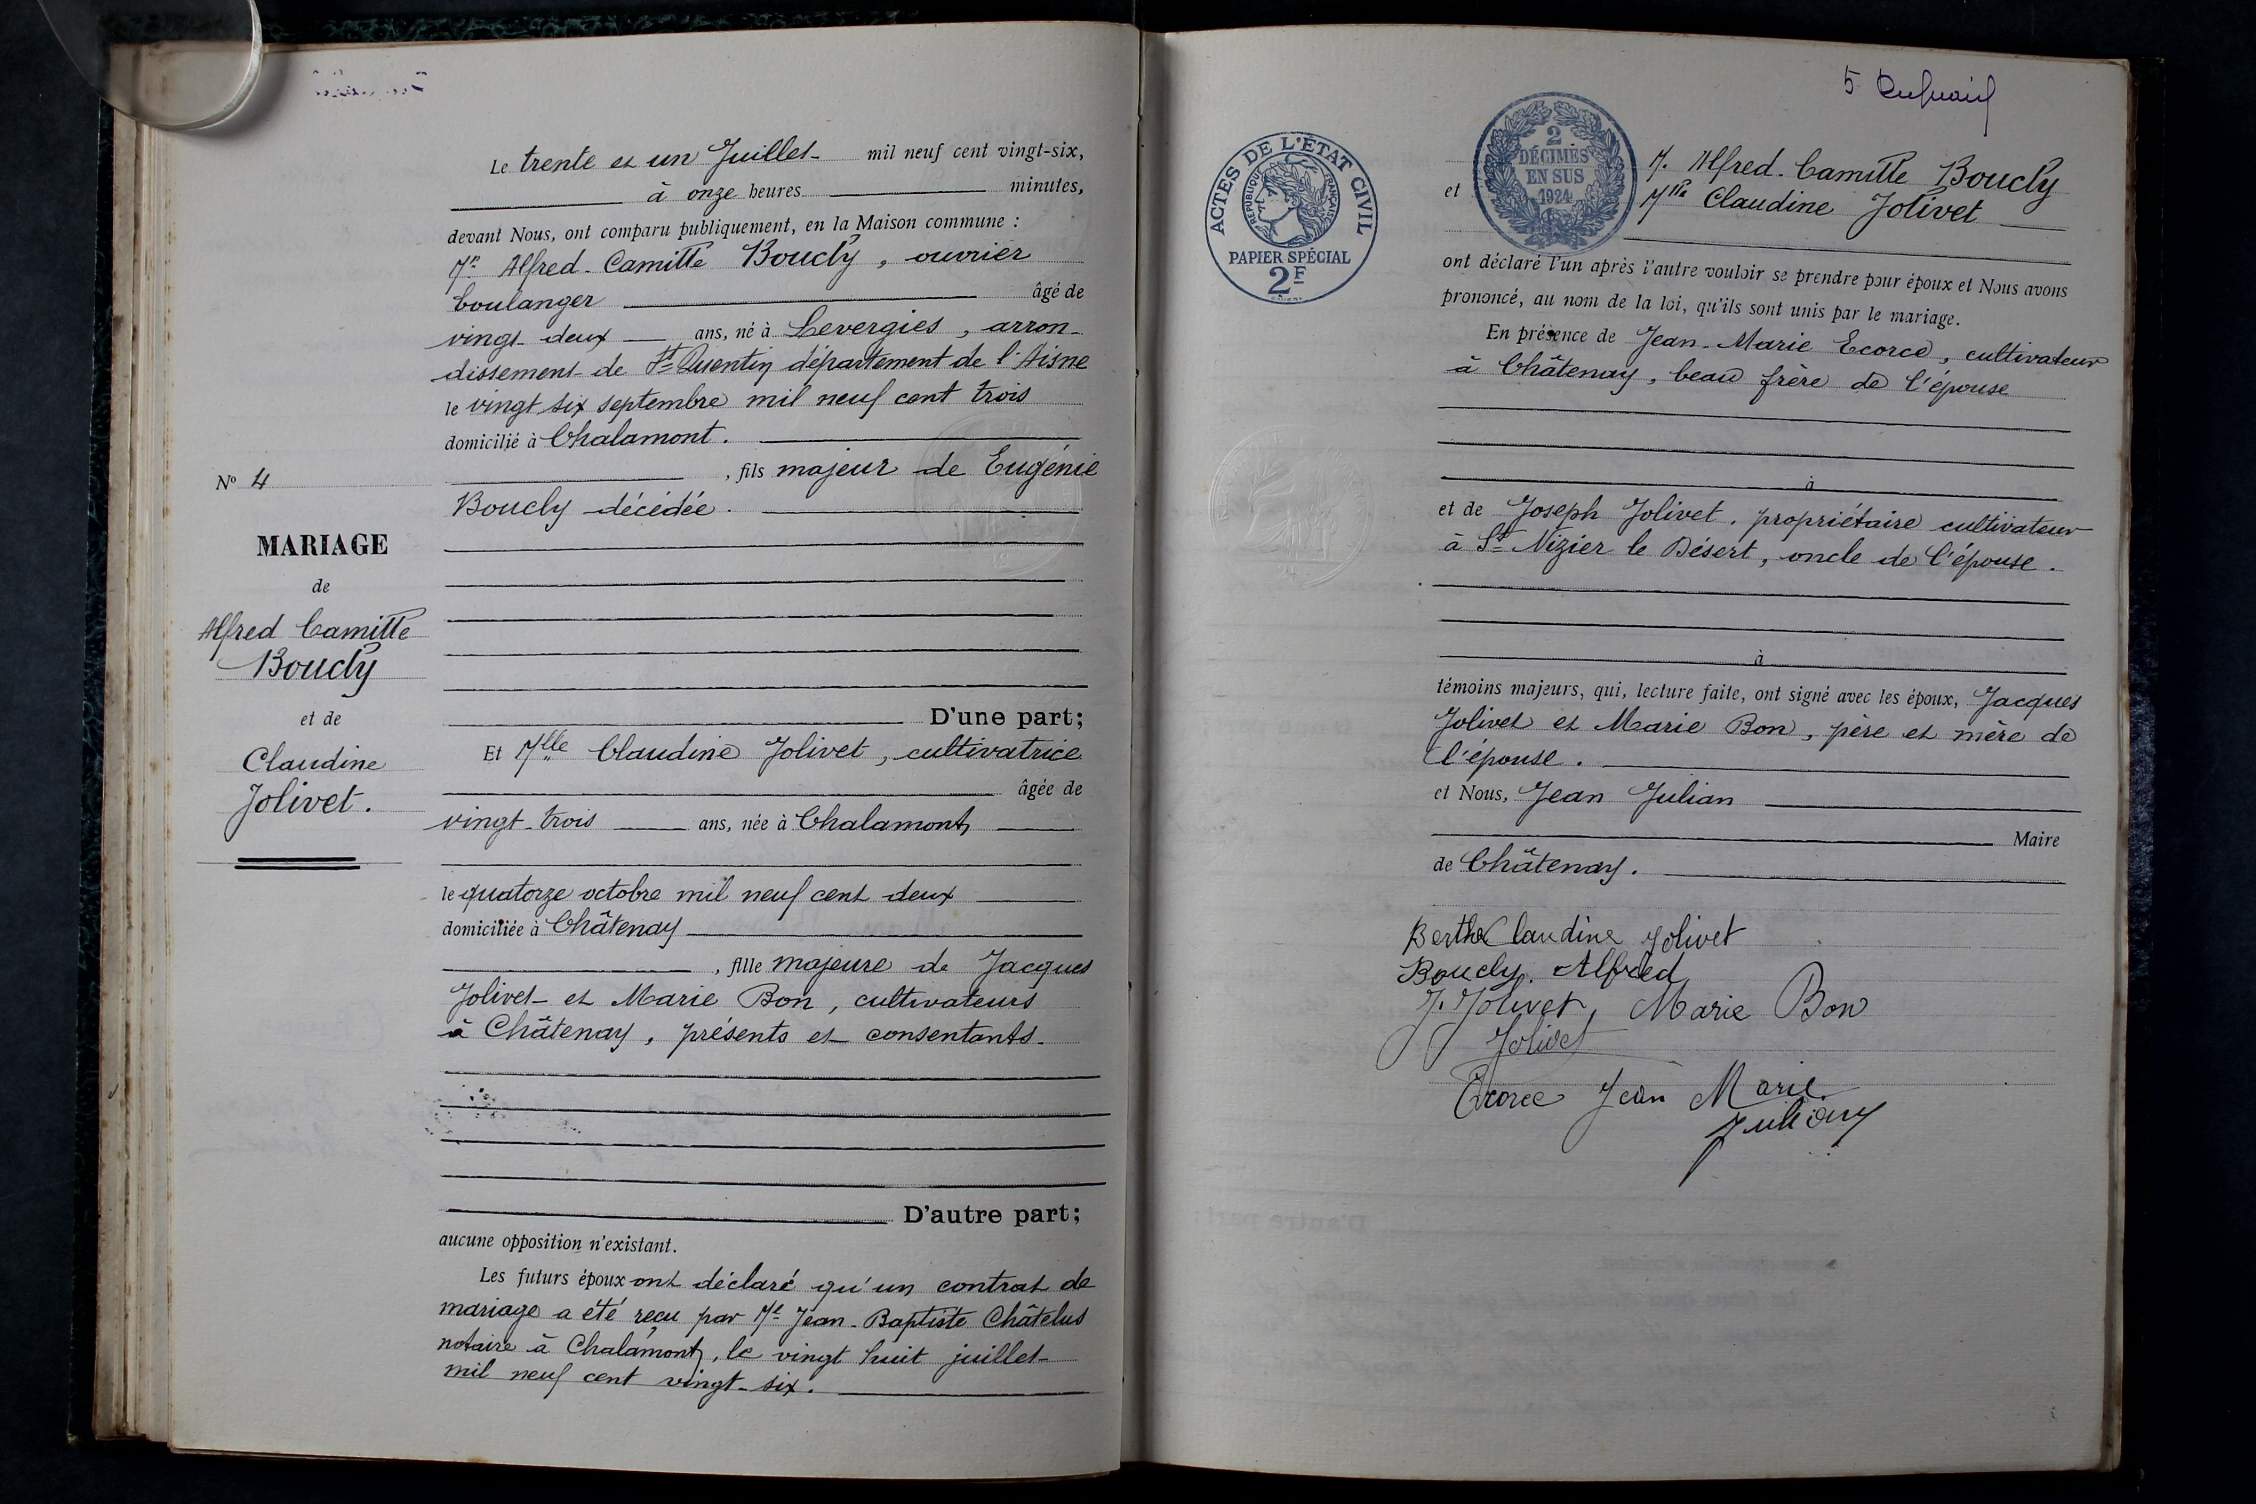 Le trente et un Juillet mil neuf cent vingt-six,
à onze heures minutes,
devant Nous, ont comparu publiquement, en la Maison commune :
Mr. Alfred-Camille Boucly, ouvrier
boulanger âgé de
vingt-deux ans, né à Levergies, arron-
dissement de St Quentin département de l'Aisne
le vingt six septembre mil neuf cent trois
domicilié à Chalamont.
, fils majeur de Eugénie
Boucly décédée.
D'une part;
Et Mlle Claudine Jolivet, cultivatrice
âgée de
vingt-trois ans, née à Chalamont
le quatorze octobre mil neuf cent deux
domiciliée à Châtenay
, fille majeure de Jacques
Jolivet et Marie Bon, cultivateurs
à Châtenay, présents et consentants.
D'autre part;
aucune opposition n'existant.
Les futurs époux ont déclaré qu'un contrat de
mariage a été reçu par Me Jean-Baptiste Châtelus
notaire à Chalamont, le vingt huit juillet
mil neuf cent vingt-six.
No 4
MARIAGE
de
Alfred Camille
Boucly
et de
Claudine
Jolivet.
5
ACTES DE L'ÉTAT CIVIL
RÉPUBLIQUE FRANÇAISE
PAPIER SPÉCIAL
2F
2
DÉCIMES
EN SUS
1924
M. Alfred-Camille Boucly
et Mlle Claudine Jolivet
ont déclaré l'un après l'autre vouloir se prendre pour époux et Nous avons
prononcé, au nom de la loi, qu'ils sont unis par le mariage.
En présence de Jean-Marie Ecorce, cultivateur
à Châtenay, beau frère de l'épouse
à
et de Joseph Jolivet, propriétaire cultivateur
à St Nizier le Désert, oncle de l'épouse.
à
témoins majeurs, qui, lecture faite, ont signé avec les époux, Jacques
Jolivet et Marie Bon, père et mère de
l'épouse.
et Nous, Jean Julian
Maire
de Châtenay.
Berthe Claudine Jolivet
Boucly. Alfred
J. Jolivet, Marie Bon
Jolivet
Ecorce Jean Marie
Julian